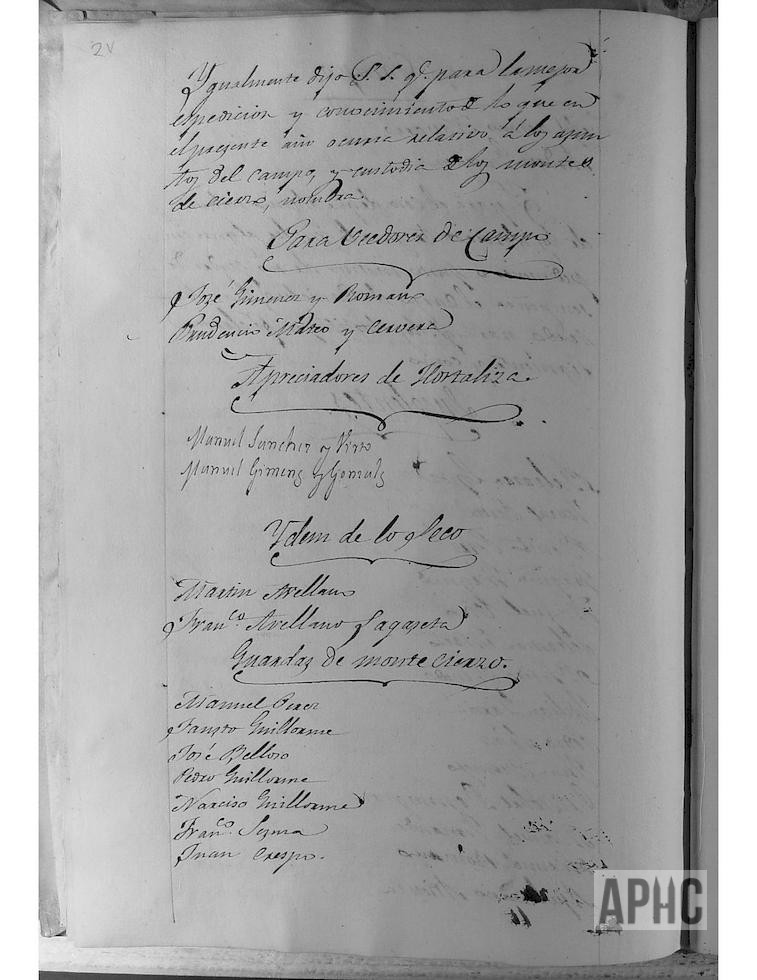 2v
Ygualmente dijo S. S. q.e para la mejor
espedicion y conocimiento de lo que en
el presente año ocurra relativo á los asun
tos del campo, y custodia de los montes
de cierzo, nombra.
Para Veedores de Campo
José Gimenez y Roman
Prudencio Mateo y Cervera
Apreciadores de Hortaliza.
Manuel Sanchez y Virto
Manuel Gimenz y Gonzalz
Ydem de lo Seco
Martin Arellano
Fran.co Arellano Sagaseta
Guardas de monte Cierzo.
Manuel Perez
Fausto Guillorme
José Belloso
Pedro Guillorme
Narciso Guillorme
Fran.co Serma
Juan Crespo.
APHC